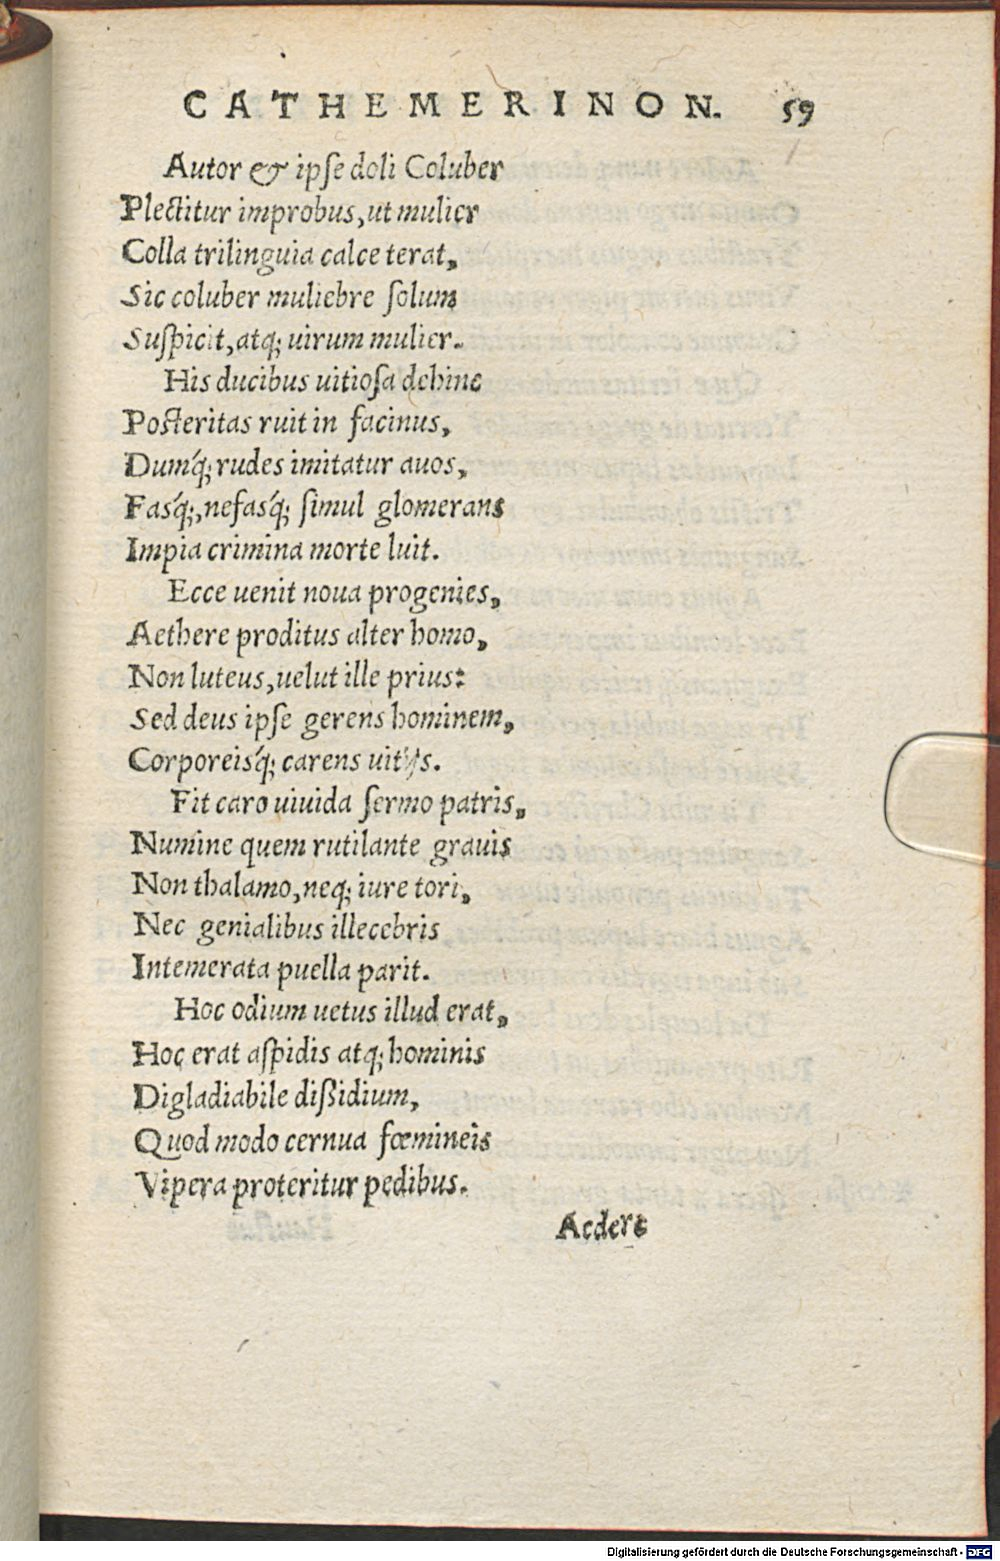 CATHEMERINON. 59
Autor & ipse doli Coluber
Plectitur improbus, ut mulier
Colla trilinguia calce terat,
Sic coluber muliebre solum
Suspicit, atq; uirum mulier.
His ducibus uitiosa dehinc
Posteritas ruit in facinus,
Dumq́; rudes imitatur auos,
Fasq́;, nefasq́; simul glomerans
Impia crimina morte luit.
Ecce uenit noua progenies,
Aethere proditus alter homo,
Non luteus, uelut ille prius:
Sed deus ipse gerens hominem,
Corporeisq́; carens uitijs.
Fit caro uiuida sermo patris,
Numine quem rutilante grauis
Non thalamo, neq; iure tori,
Nec genialibus illecebris
Intemerata puella parit.
Hoc odium uetus illud erat,
Hoc erat aspidis atq; hominis
Digladiabile dißidium,
Quod modo cernua fœmineis
Vipera proteritur pedibus.
Aedere
Digitalisierung gefördert durch die Deutsche Forschungsgemeinschaft - DFG